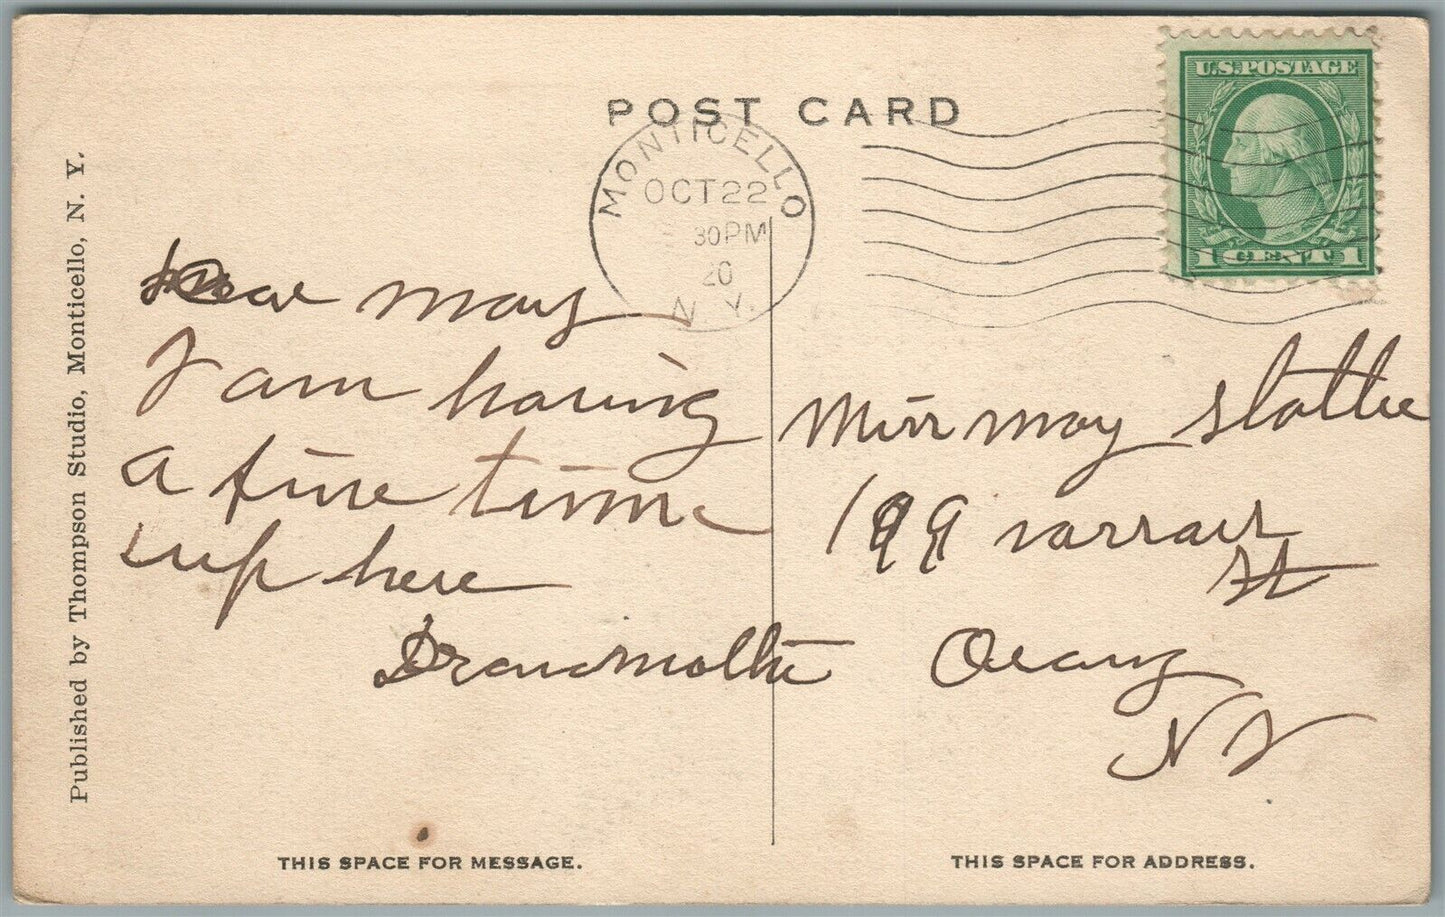 POST CARD
U.S. POSTAGE
1 CENT 1
MONTICELLO
OCT 22
30 PM
20
N. Y.
Published by Thompson Studio, Monticello, N. Y.
Dear May
I am having
a fine time
up here
Grandmother
Miss May
199
St
Orange
N J
THIS SPACE FOR MESSAGE.
THIS SPACE FOR ADDRESS.